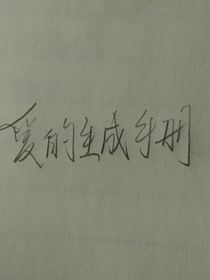 爱的生成手册